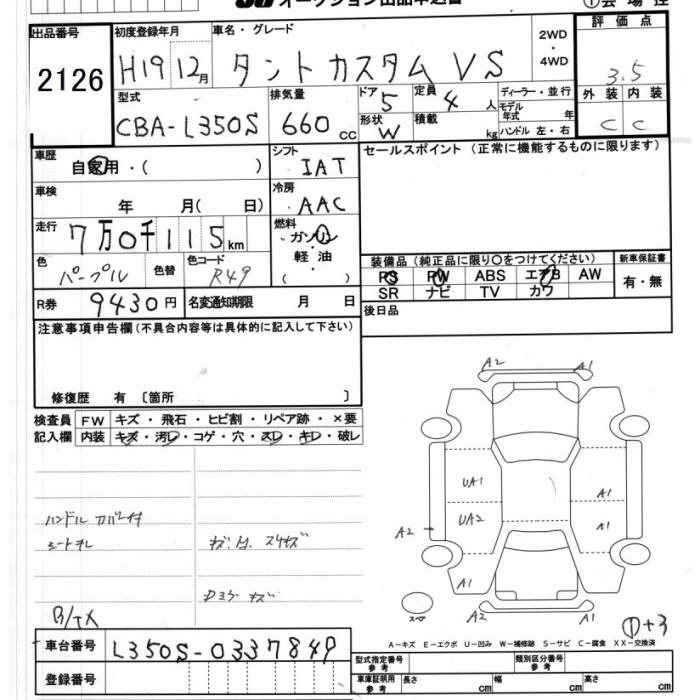 オークション出品申込書
①会場控
出品番号 2126
初度登録年月 H19 12月
車名・グレード タントカスタム VS
2WD・4WD
評価点 3.5
外装 内装
C C
型式 CBA-L350S
排気量 660 cc
ドア 5
形状 W
定員 4 人
積載 kg
ディーラー・並行
モデル年式 年
ハンドル 左・右
車歴 自家用・( )
シフト IAT
セールスポイント (正常に機能するものに限ります)
車検 年 月( 日)
冷房 AAC
走行 7万0千115km
燃料 ガソリン・軽油・( )
色 パープル
色替
色コード R49
装備品 (純正品に限り〇をつけてください)
新車保証書 有・無
PS PW ABS エアB AW
SR ナビ TV カワ
R券 9430円
名変通知期限 月 日
後日品
注意事項申告欄 (不具合内容等は具体的に記入して下さい)
修復歴 有 〔箇所 〕
検査員記入欄
FW キズ・飛石・ヒビ割・リペア跡・×要
内装 キズ・汚レ・コゲ・穴・スレ・キレ・破レ
A2 A1
UA1 A1
UA2 A1
A2
A1
A2 A1
スペア
ハンドルカバー付
シートキレ
B/TX
①+3
車台番号 L350S-0337849
登録番号
A-キズ E-エクボ U-凹み W-補修跡 S-サビ C-腐食 XX-交換済
型式指定番号 参考
類別区分番号 参考
車庫証明用 参考 長さ cm 幅 cm 高さ cm